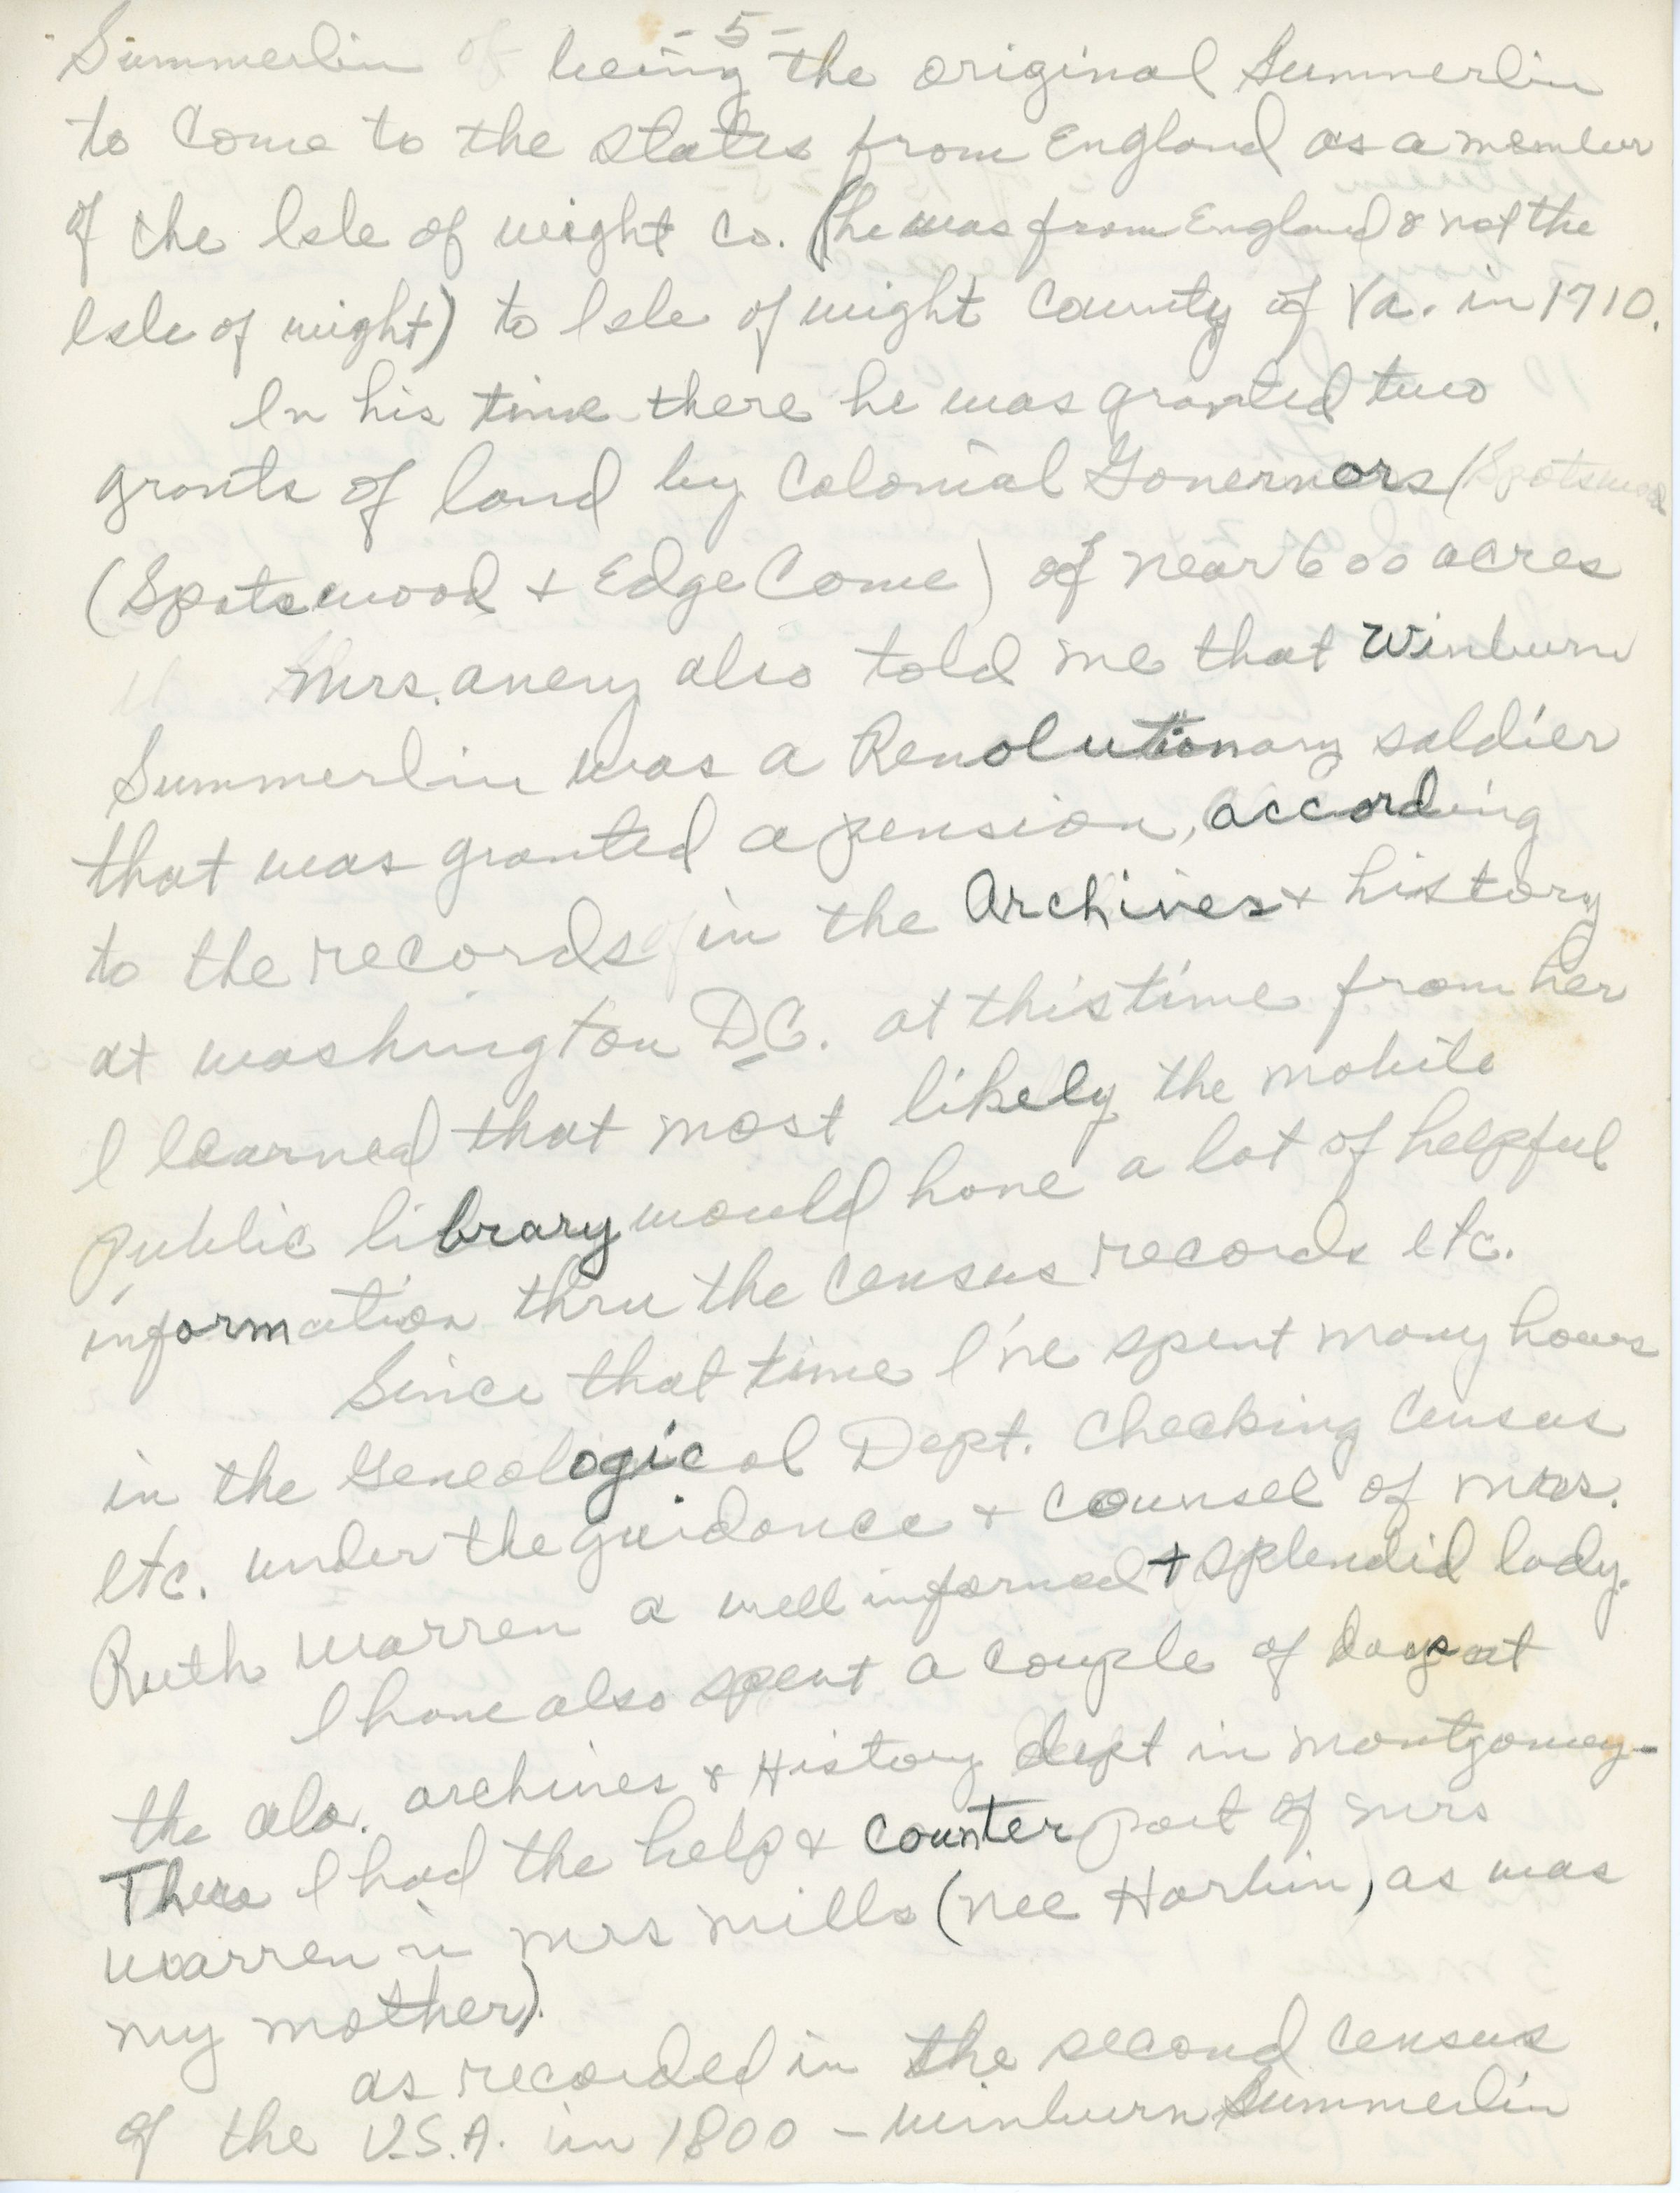 - 5 -
Summerlin of being the original Summerlin
to Come to the States from England as a member
of the Isle of wight Co. (he was from England & not the
Isle of wight) to Isle of wight County of Va. in 1710.
In his time there he was granted two
grants of land by Colonial Governors (Spotswood
(Spotswood + EdgeCome) of near 600 acres
Mrs. avery also told me that Winburn
Summerlin was a Revolutionary soldier
that was granted a pension, according
to the records of in the Archives + history
at washington D.C. at this time from her
I learned that most likely the mobile
public library would have a lot of helpful
information thru the census records etc.
Since that time I've spent many hours
in the Genealogical Dept. Checking Census
etc. under the guidance + counsel of mrs.
Ruth Warren a well informed + splendid lady.
I have also spent a couple of days at
the ala. archives & History dept in montgomey-
There I had the help & counter part of mrs
Warren in mrs mills (nee Harbin, as was
my mother).
as recorded in the second census
of the U.S.A. in 1800 - winburn Summerlin